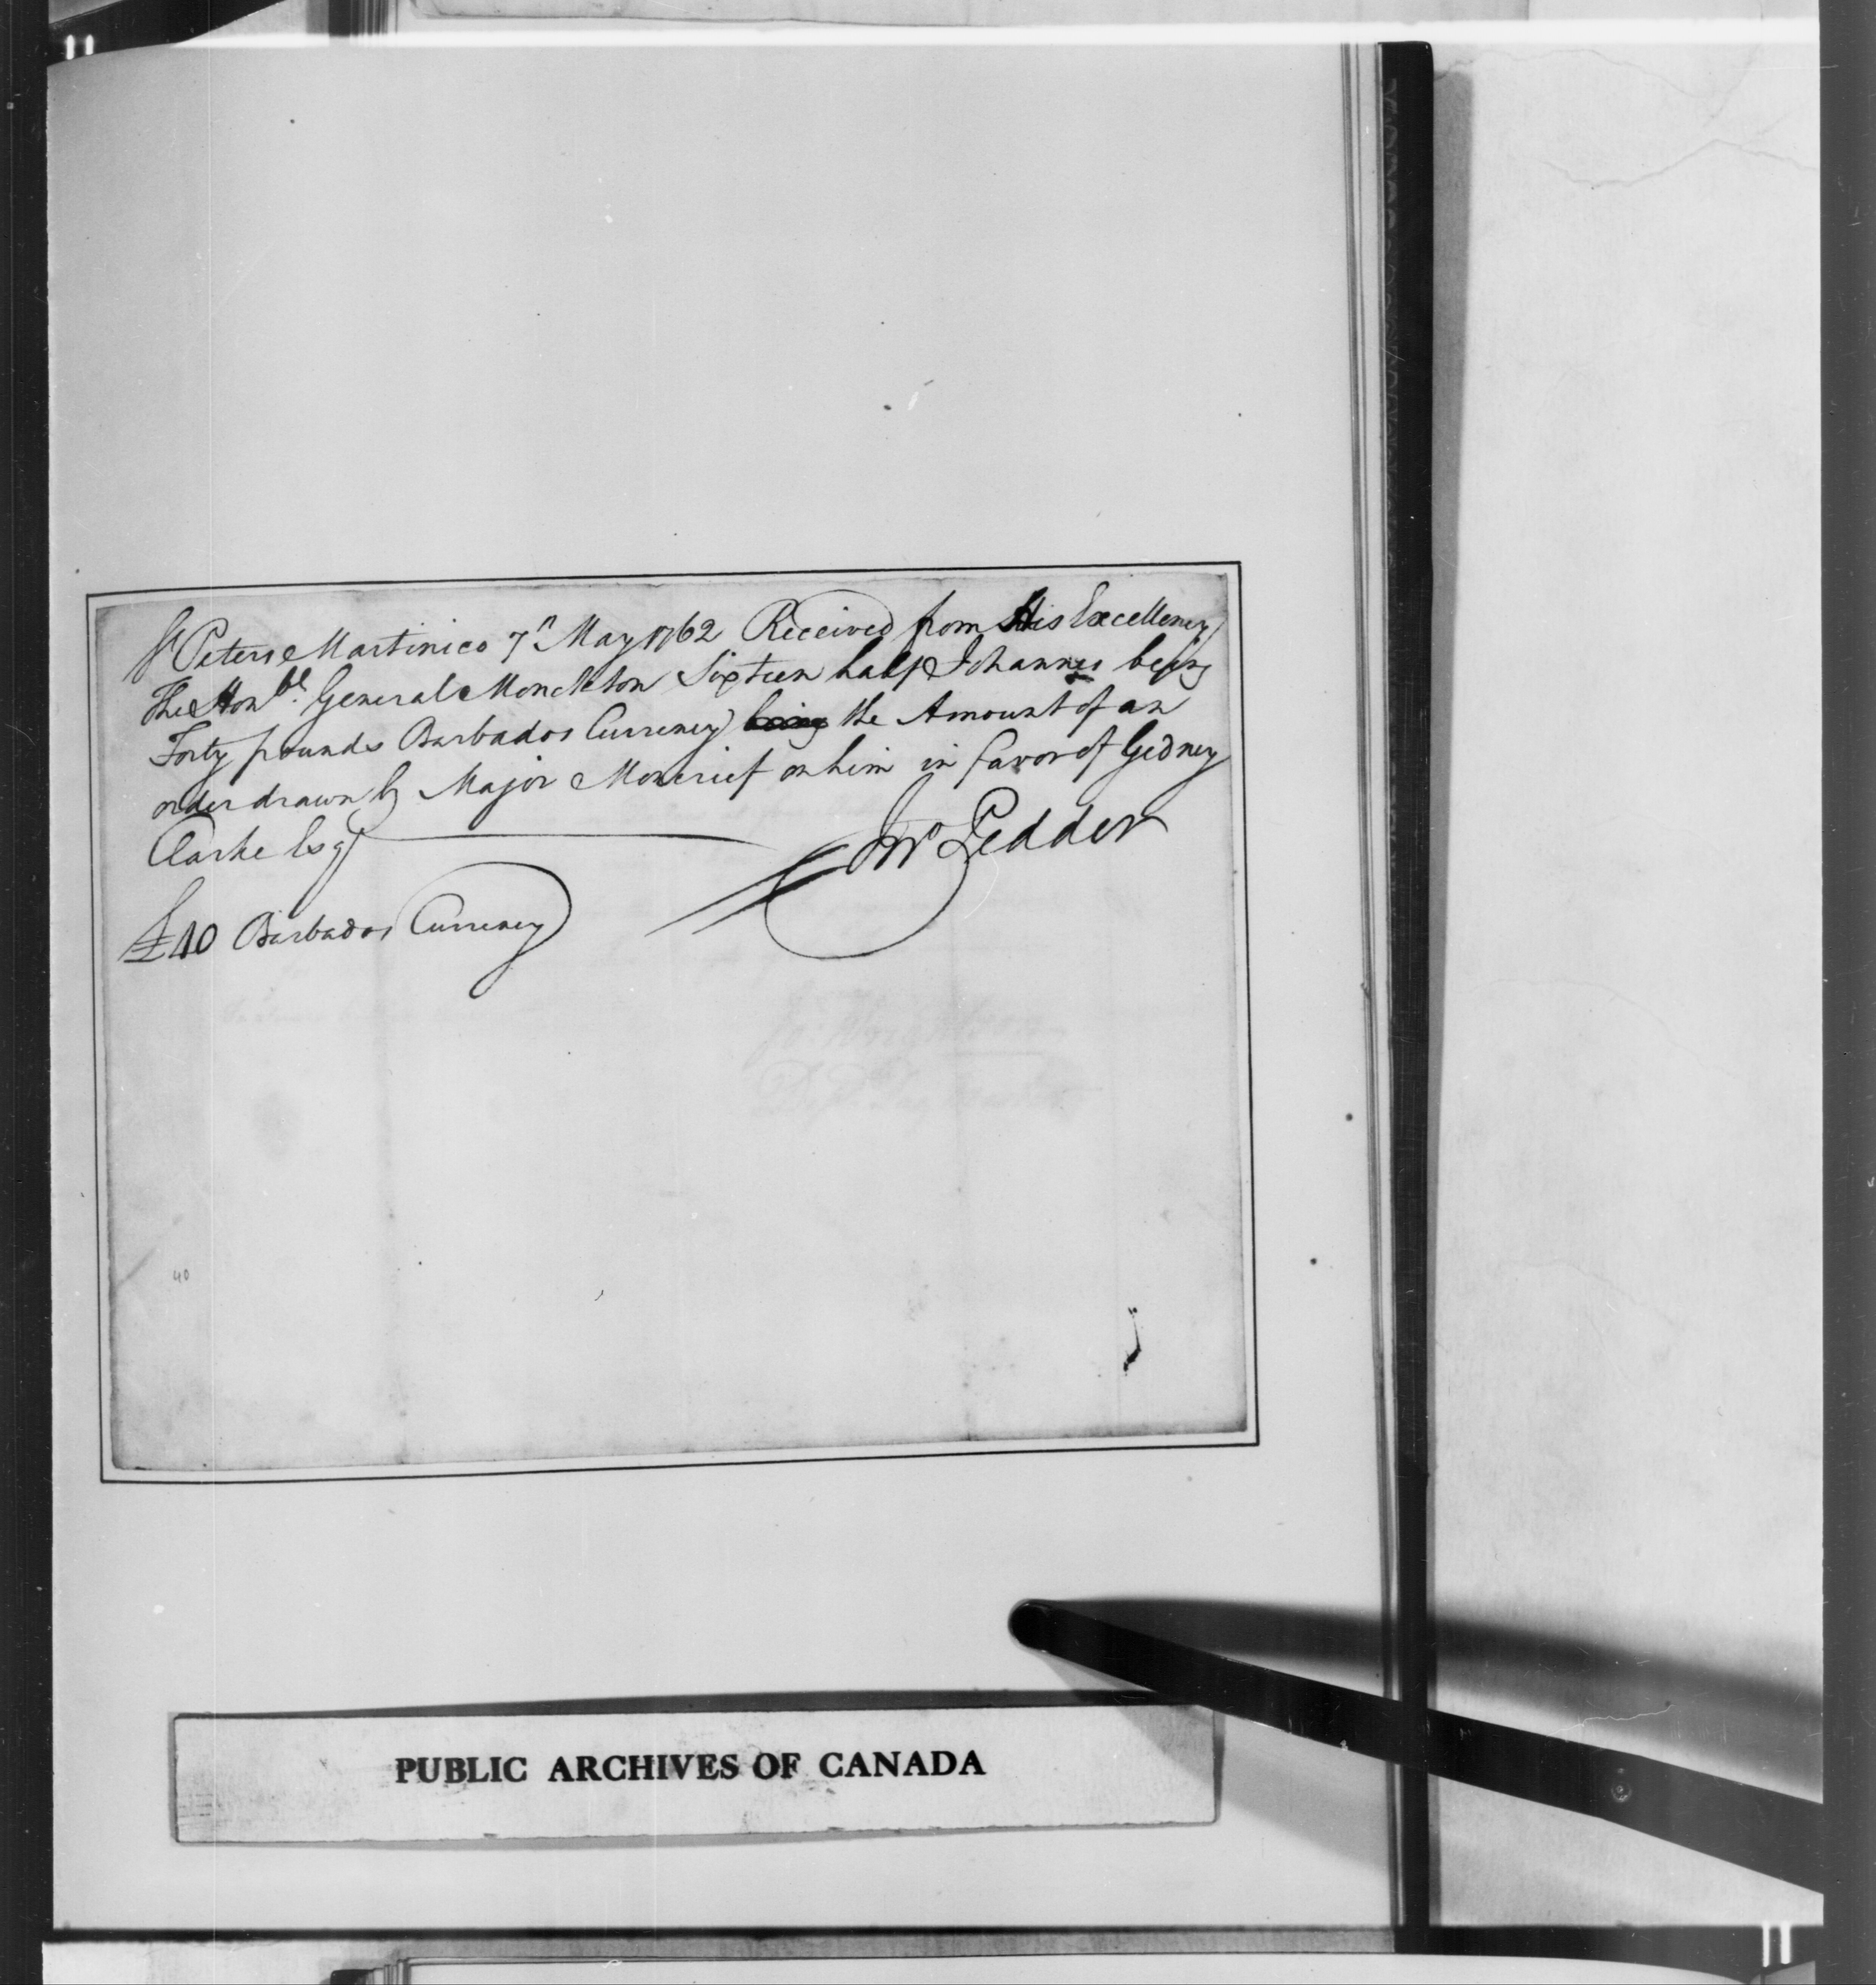 St Peters Martinico 7th May 1762 Received from His Excellency
The Honble. General Monckton Sixteen half Johannes being
Forty pounds Barbados Currency being the Amount of an
order drawn by Major Moncrief on him in favor of Gedney
Clarke Esqr
Jno Pedder
£40 Barbados Currency
40
PUBLIC ARCHIVES OF CANADA